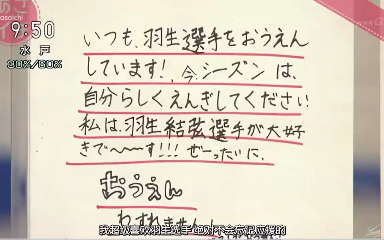 あさ
asaichi
イチ
9:50
水戸
20%/60%
いつも、羽生選手をおうえん
しています!、今、シーズンは、
自分らしくえんぎしてください
私は、羽生結弦選手が大好
きで〜〜〜す!!!ぜーったいに、
おうえん
わすれません!
我超级喜欢羽生选手 绝对不会忘记应援的